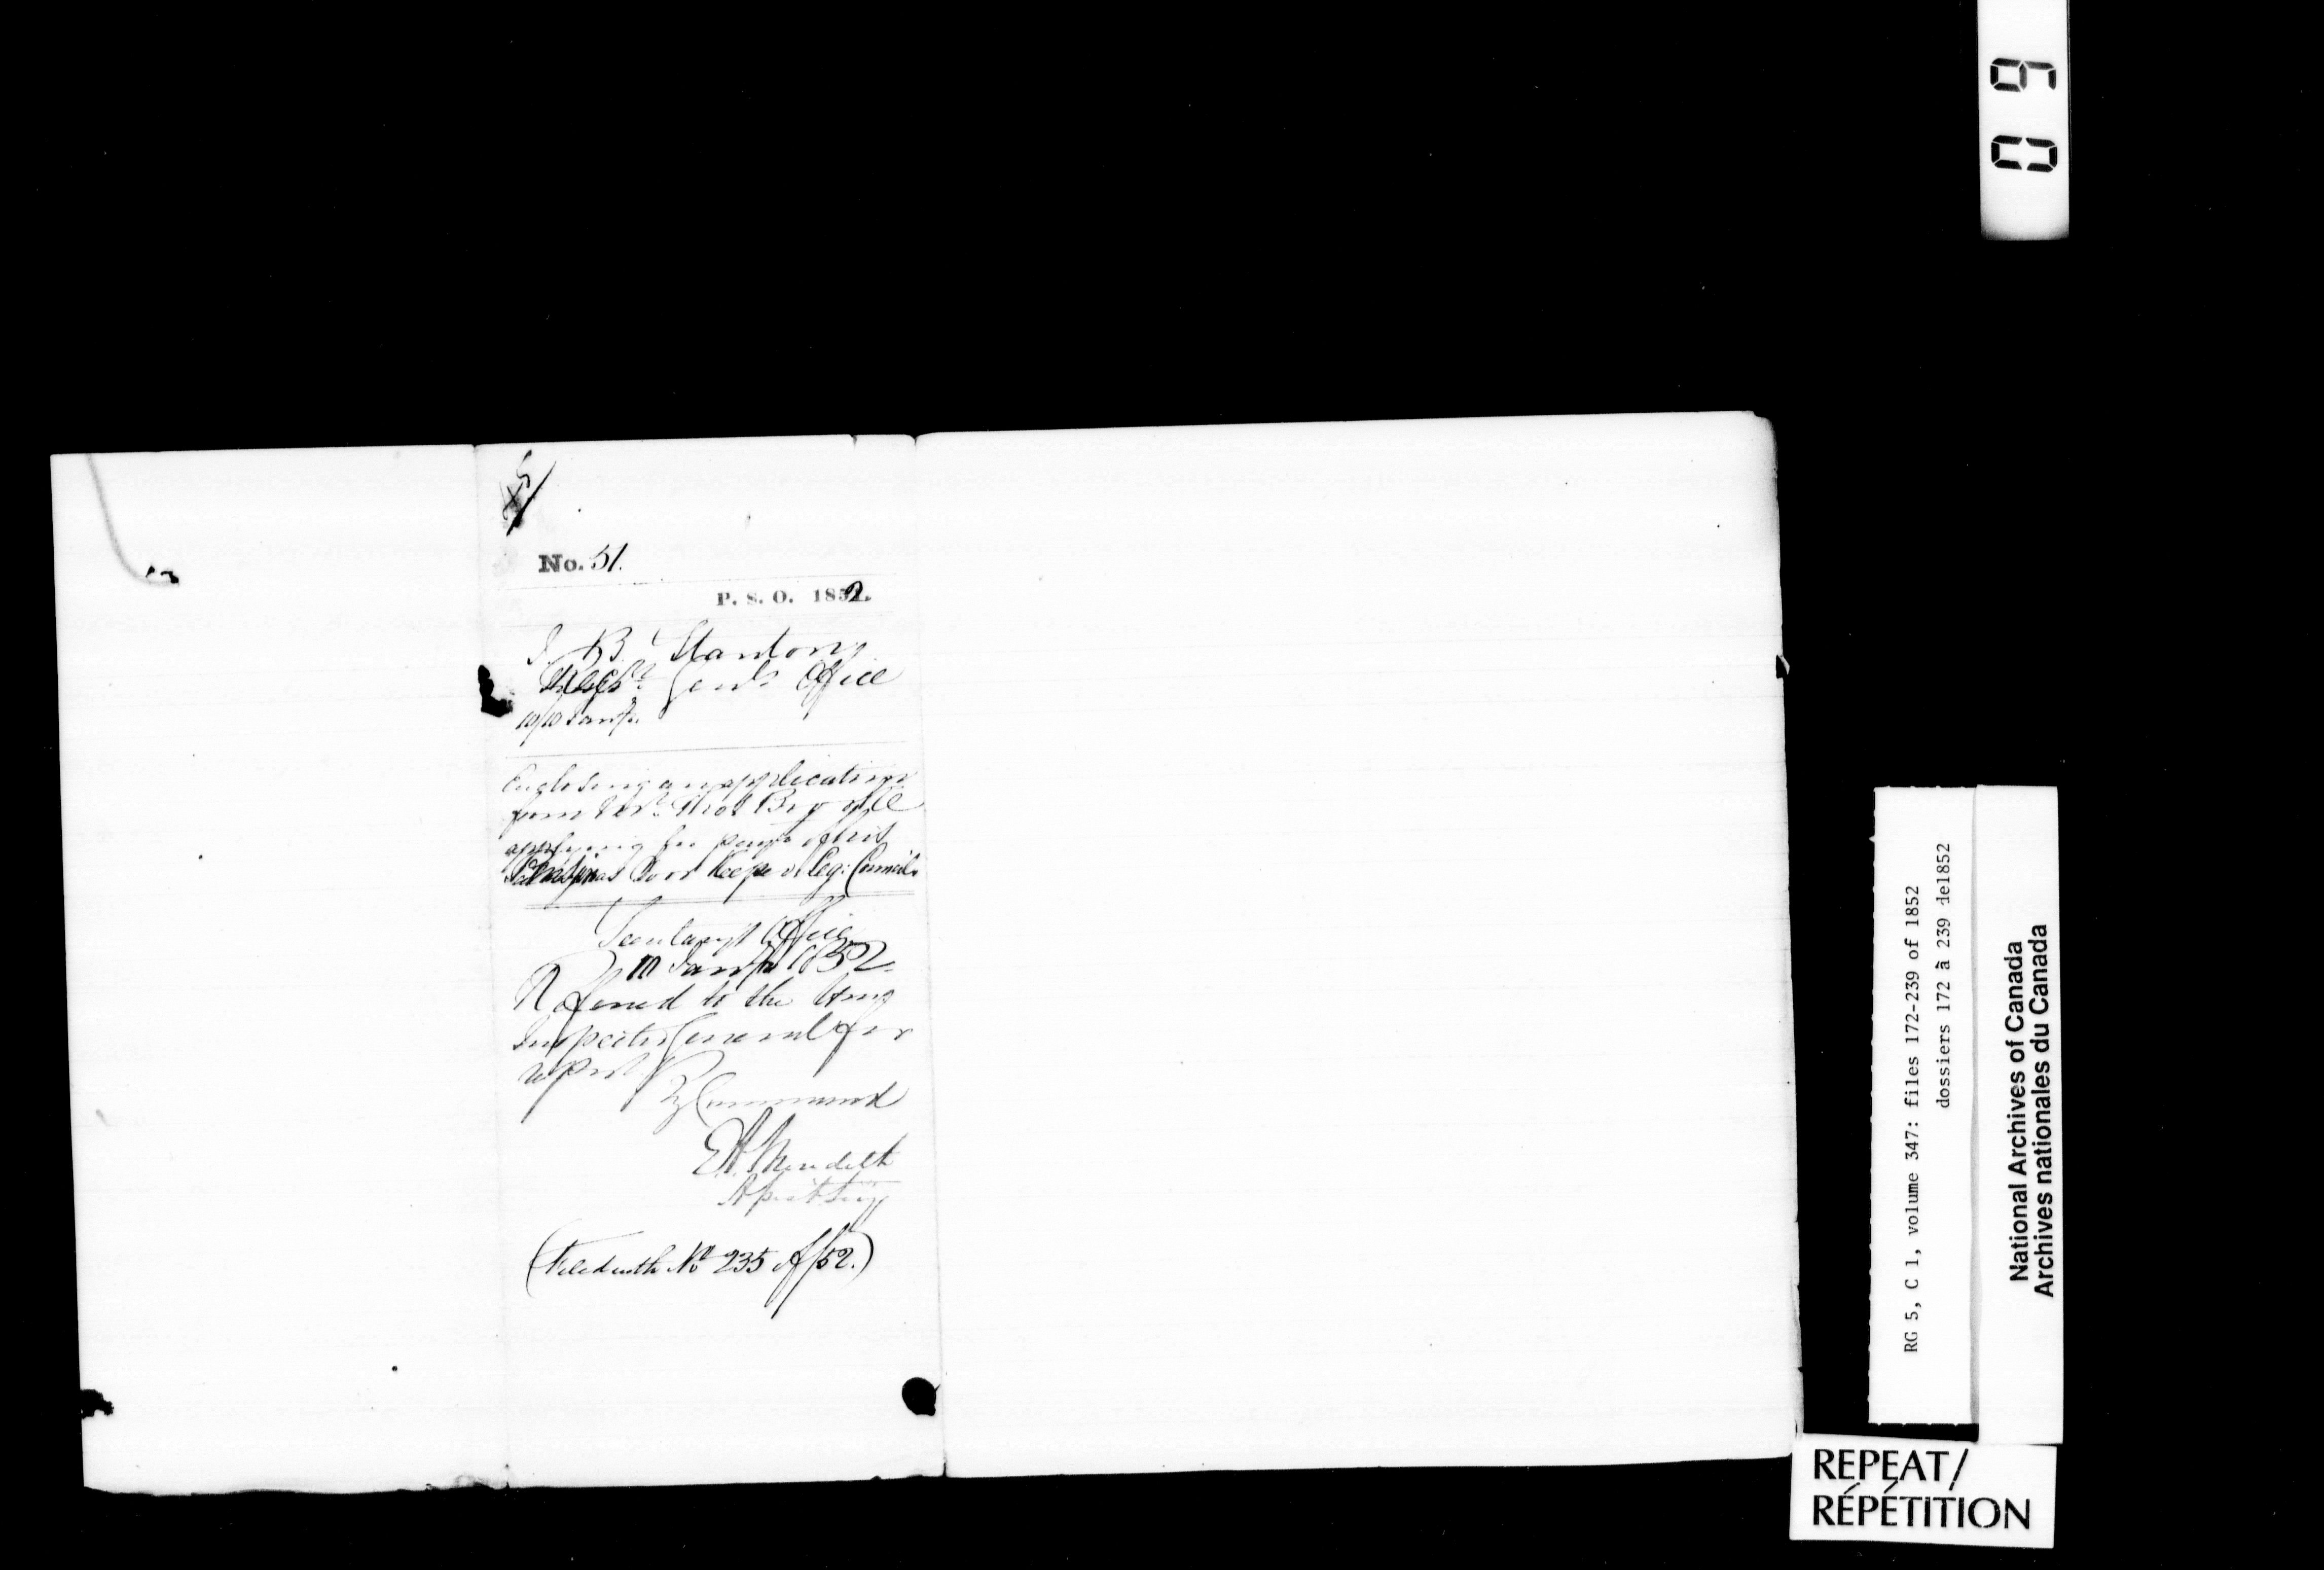 51
No. 51.
P. S. O. 1852.
J. B. Stanton
Recr. Genl's Office
10/10 Jany/52
Enclosing an application
from
applying for paymt of his
Pension as Door Keeper of Leg: Council.
Secretary's Office
10 Jany 1852
Referred to the Hong
Inspector General for
report.
By Command
E A Meredith
Asst Secy
(Filed with No 235 of/52.)
09
RG 5, C 1, volume 347: files 172-239 of 1852
dossiers 172 à 239 de1852
National Archives of Canada
Archives nationales du Canada
REPEAT/
RÉPÉTITION